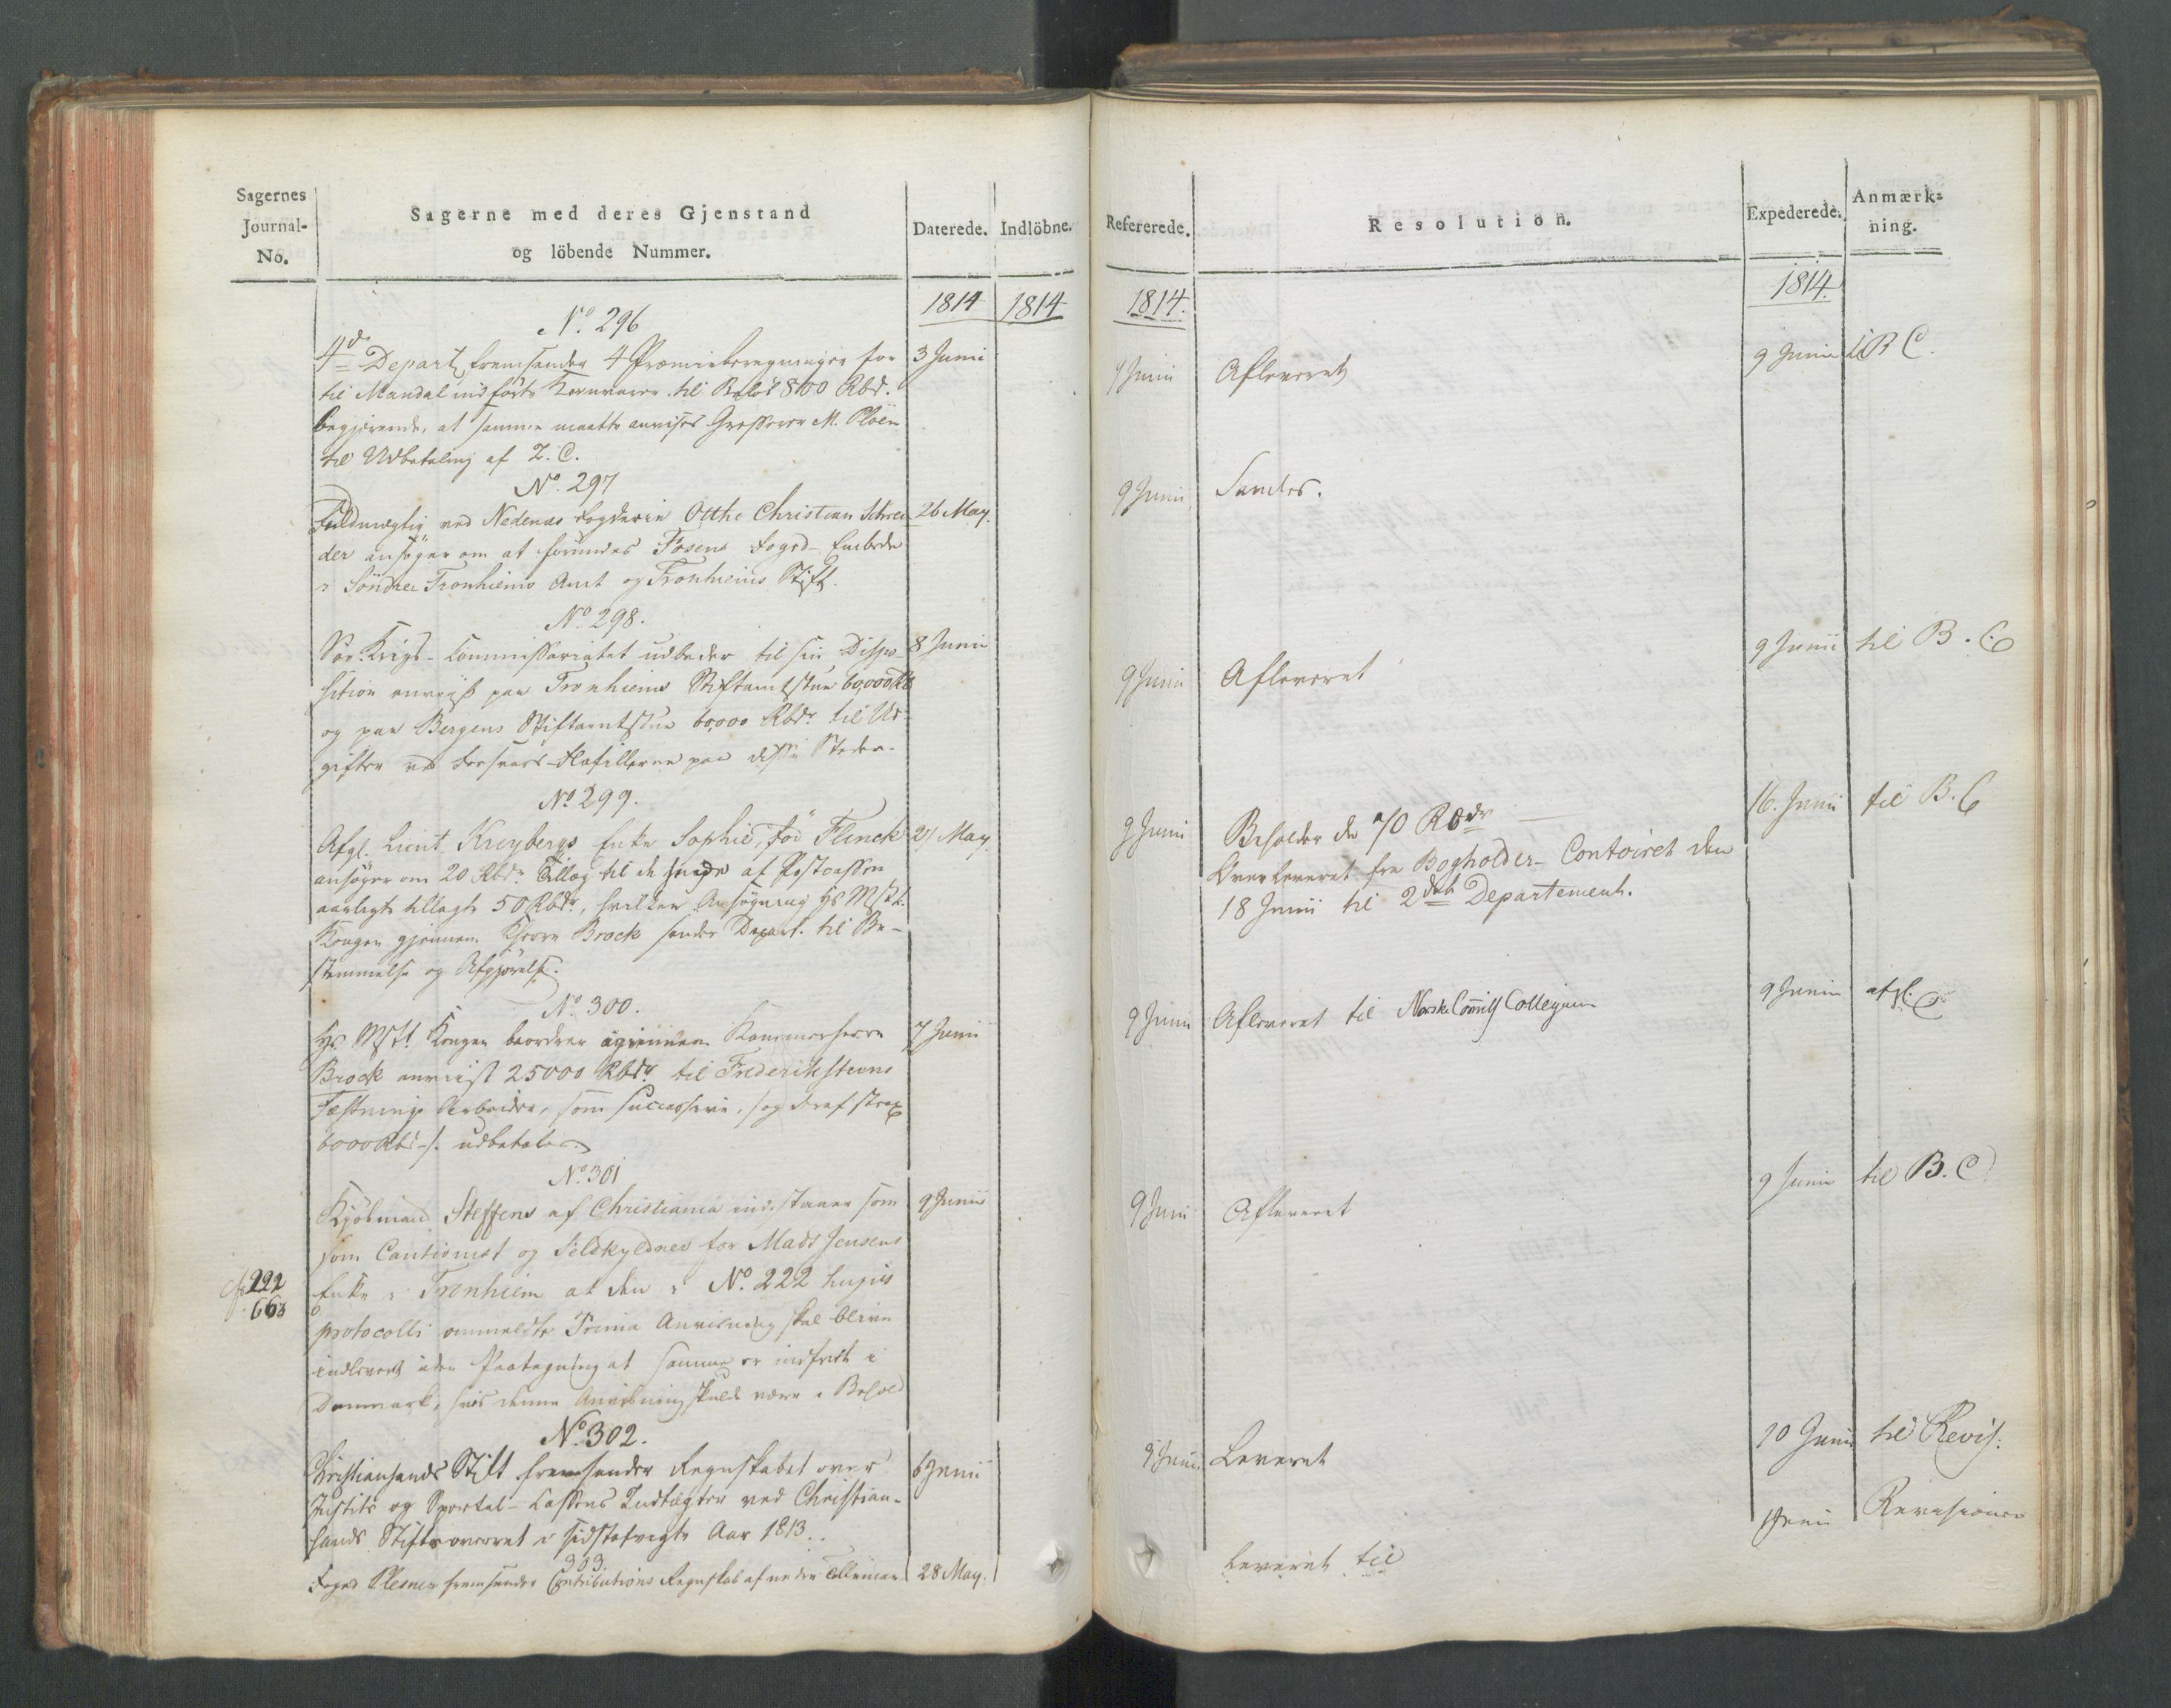 Sagernes
Journal-
No.
Sagerne med deres Gjenstand
og löbende Nummer.
Daterede.
Indlöbne.
1814
1814
No. 296
4de Depart fremsender 4 Præmieberegninger for
3 Junii
til Mandal indförte Kornvarer til Belöb 8100 Rbd.
begjerende, at samme maatte anvises Grosserer M. Ploën
til Udbetaling af Z. C.
No. 297
Fuldmægtig ved Nedenæs Fogderie Otthe Christian Schrei-
26 May.
der ansöger om at forundes Fosens Fogd-Embede
i Söndre Tronhiems Amt og Tronhiems Stift.
No. 298.
Sör Krigs-Commissariatet udbeder til sin Dispo-
8 Junii
sition anviist paa Tronhiems Stiftamtstue 60,000 Rd
og paa Bergens Stiftamtstue 60,000 Rbdr til Ud-
gifter ved Forsvars-Flotillerne paa disse Steder.
No. 299.
Afgl. Lieut. Kreybergs Enke Sophie, föd Flinck
21 May
ansöger om 20 Rbdr Tillæg til de hende af Postcassen
aarligt tillagte 50 Rbdr, hvilken Ansögning Hs Mst.
Kongen gjennem Khrre Brock sender Depart. til Be-
stemmelse og Afgjörelse.
No. 300.
Hs Mst. Kongen beordrer igiennem Kammerherre
7 Junii
Brock anviist 25000 Rbdr til Frederikssteens
Fæstnings Arbeider, som successive, og deraf strax
6000 Rbd -/. udbetales.
No. 301
Kjöbmand Steffens af Christiania indestaaer som
9 Junii
som Cautionist og Selvskyldner for Mads Jensens
cfr 222
663
Enke i Tronhiem at den i No. 222 hujus
protocolli ommeldte Prima Anviisning skal blive
indleveret uden Paategning at samme er indfriet i
Danmark, hvis denne Anviisning skulde være i Behold
No. 302.
Christiansands Stift fremsender Regnskabet over
6 Junii
Justits og Sportel-Cassens Indtægter ved Christian-
sands Stiftsoverret i sidstafvigte Aar 1813.
303.
Foged Plesner fremsender Contributions Regnskab af nedre Tellemarken
28 May.
Refererede.
Resolution.
Expederede.
Anmærk-
ning.
1814.
1814.
9 Junii
Afleveret
9 Junii
til B C.
9 Junii
Sendes.
9 Junii
Afleveret
9 Junii
til B. C
9 Junii
Beholder de 70 Rbdr
16. Junii
til B. C
Overleveret fra Bogholder-Contoiret den
18 Junii til 2det Departement.
9 Junii
Afleveret til Norske Committ Collegium
9 Junii
9 Junii
Afleveret
9 Junii
til B. C
9 Junii
Leveret
10 Junii
til Revis:
Leveret til
Junii
Revisionen